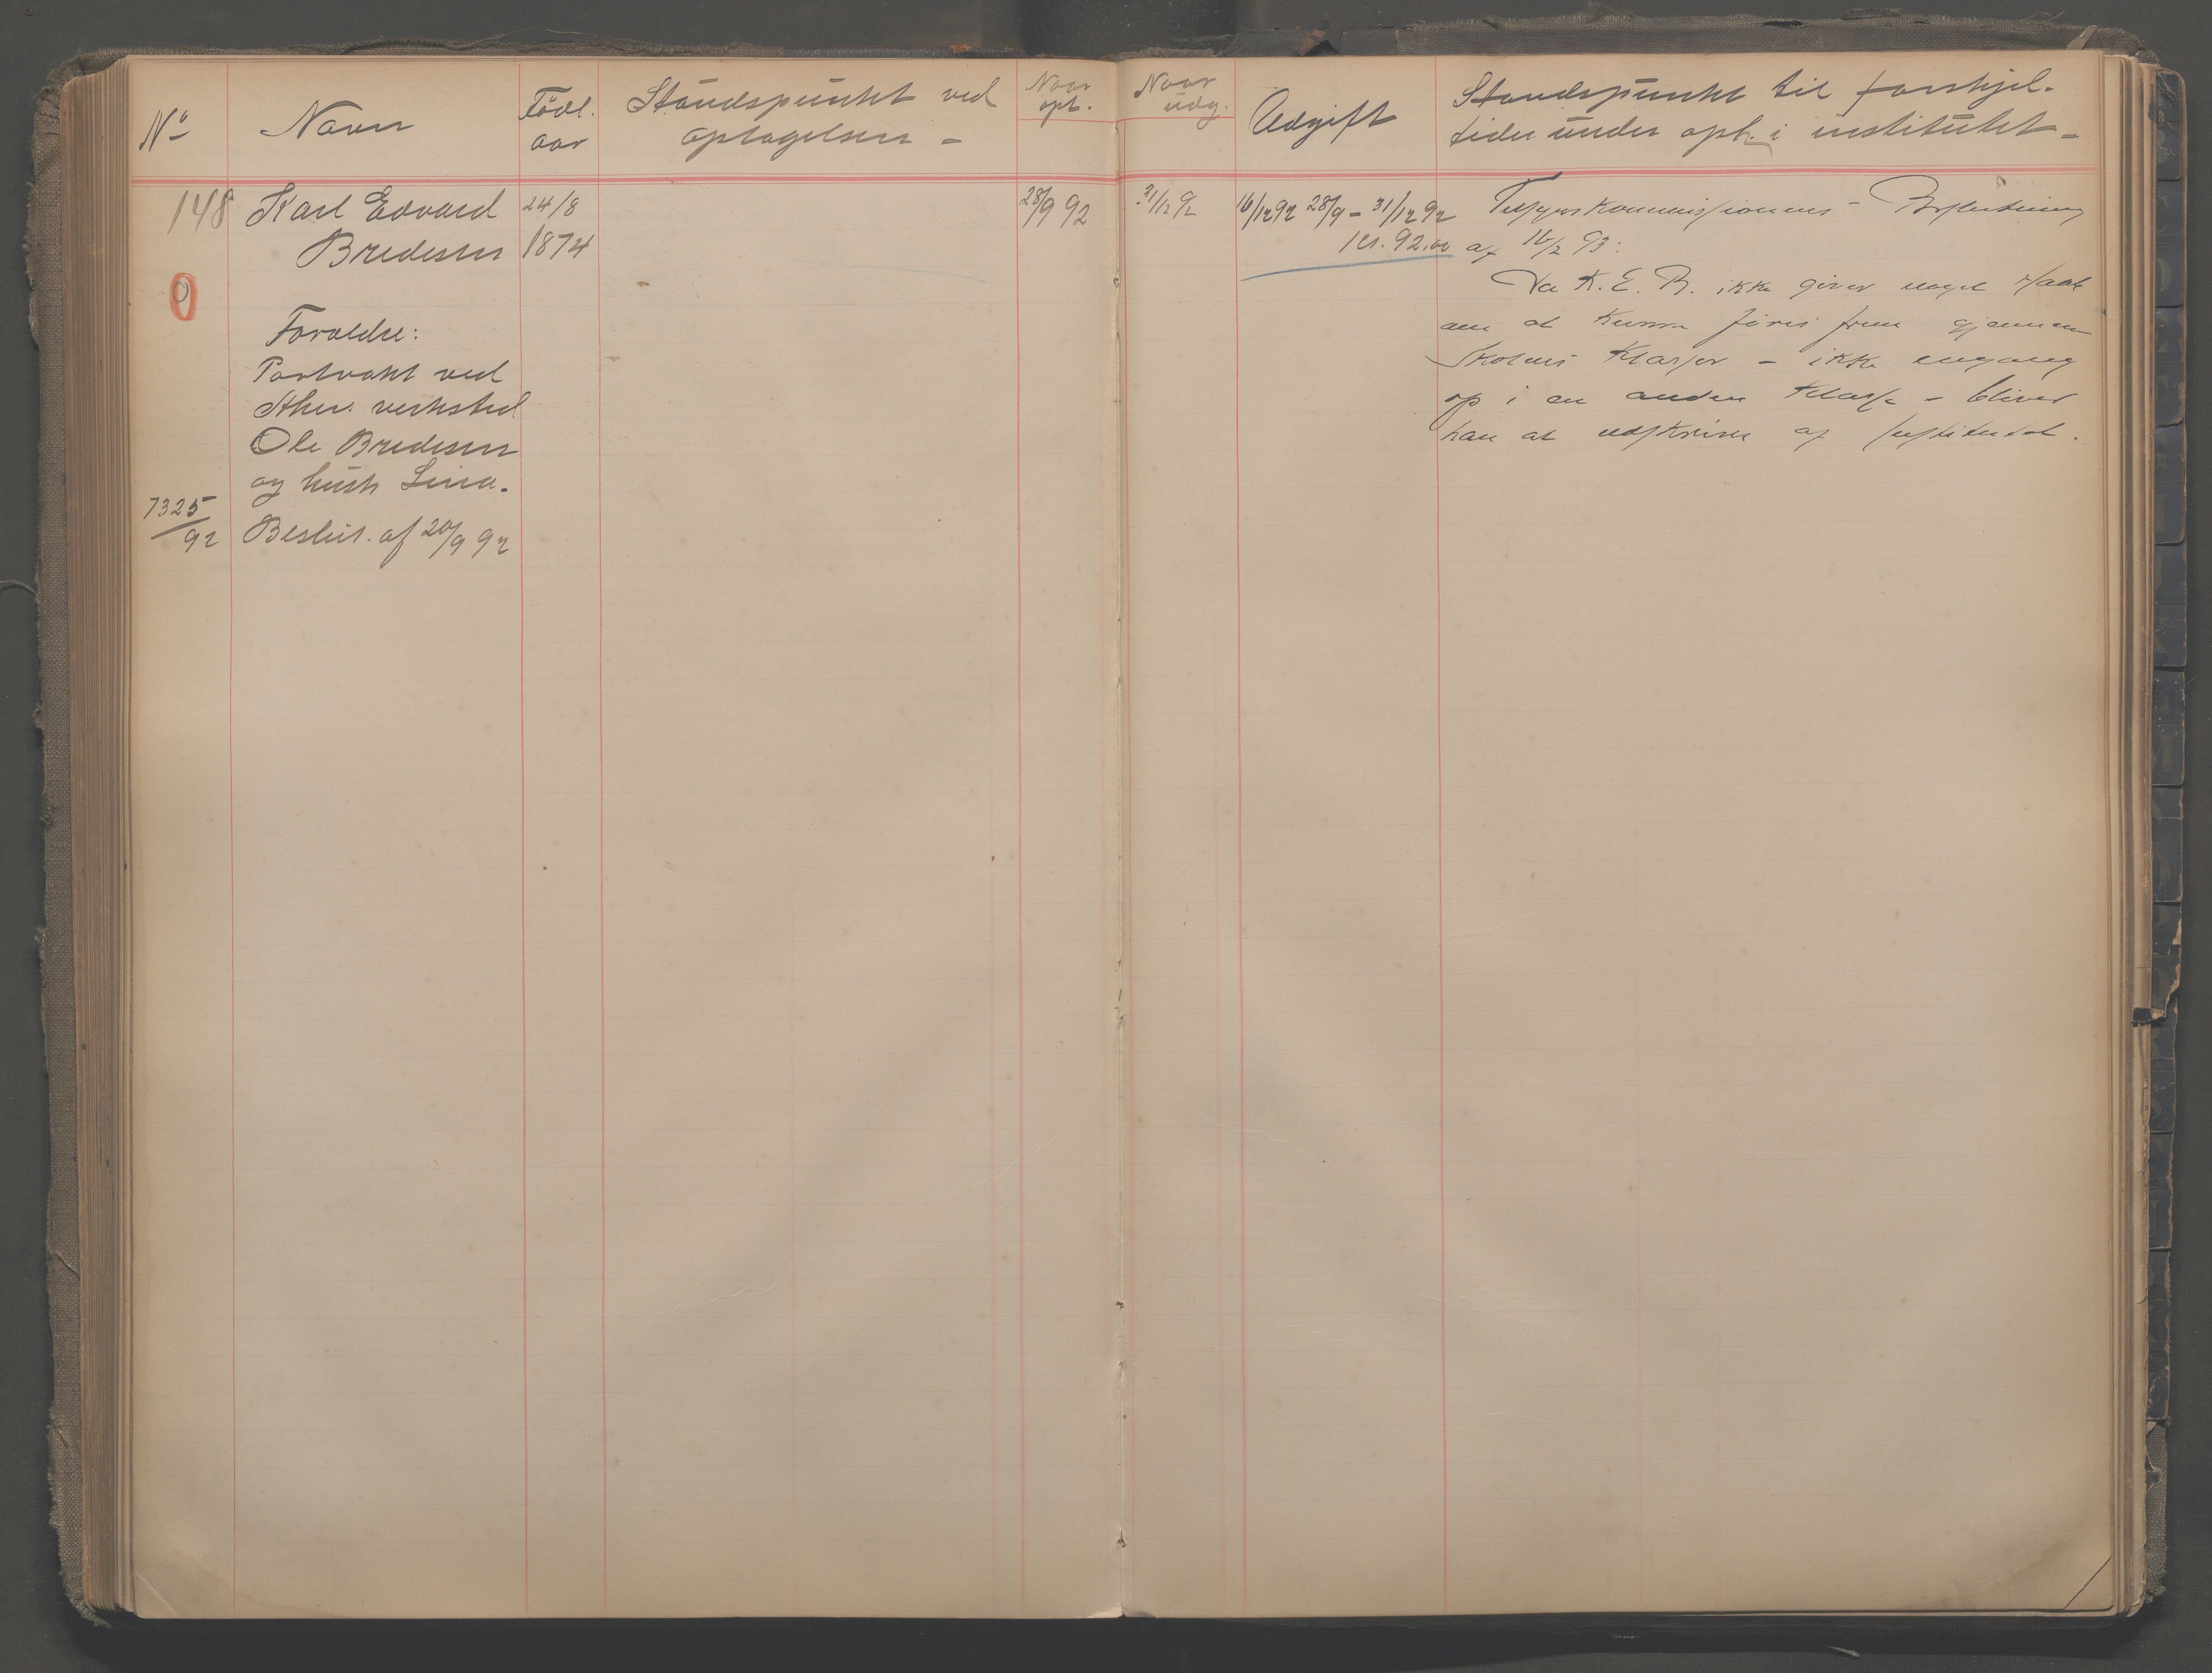 No
Navn
Födl.
aar
Standspunkt ved
optagelsen -
Naar
opt.
Naar
udg.
Udgift
Standspunkt til forskjel.
tider under oph. i institutet -
148
Karl Edvard
Bredesen
24/8
1874
0
Forældre:
Portvakt ved
Aker. verksted
Ole Bredesen
og hustr Lina.
7325/92
Beslut. af 20/9 92
28/9 92
31/12 92
16/12 92 28/9 - 31/12 92
kr. 92.00
Tilsynskommissionens Beslutning
af 16/2 93:
Da K. E. B. ikke giver noget Haab
om at kunne föres frem gjennem
Skolens Klasser - ikke engang
op i en anden Klasse - bliver
han at udskrive af Institutet.